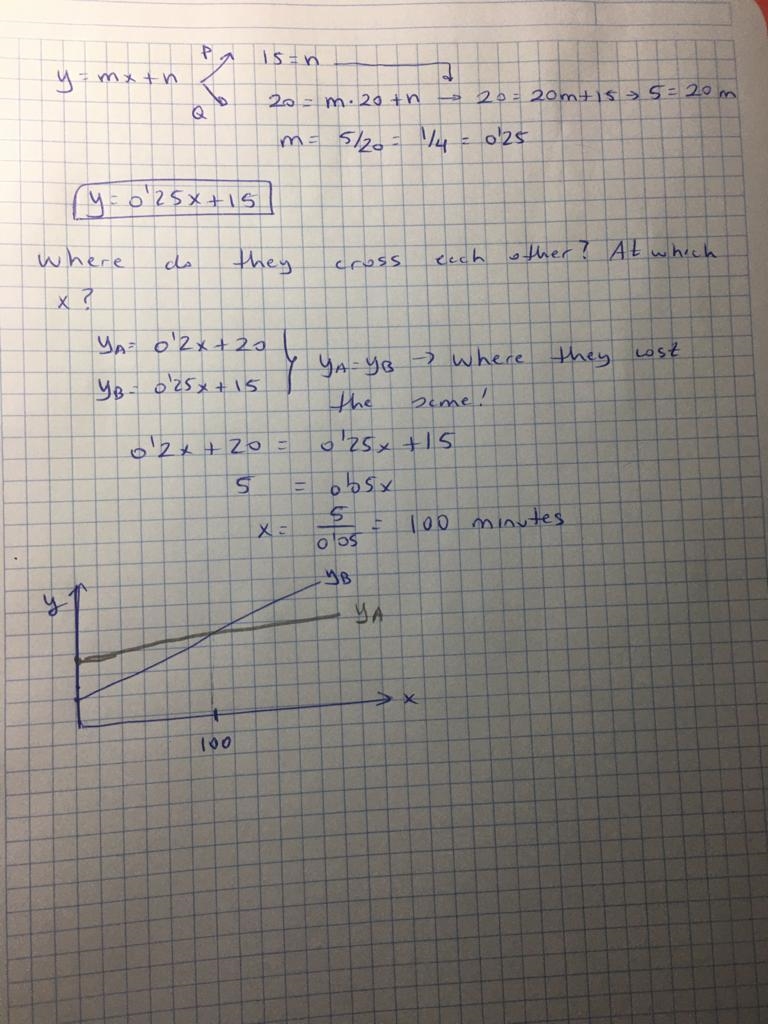 y = mx + n P 15 = n
Q 20 = m·20 + n → 20 = 20m + 15 → 5 = 20m
m = 5/20 = 1/4 = 0'25
y = 0'25x + 15
Where do they cross each other? At which
x?
yA = 0'2x + 20
yB = 0'25x + 15 } yA = yB → where they cost
the same!
0'2x + 20 = 0'25x + 15
5 = 0'05x
x = 5/0'05 = 100 minutes
yB
y
yA
x
100